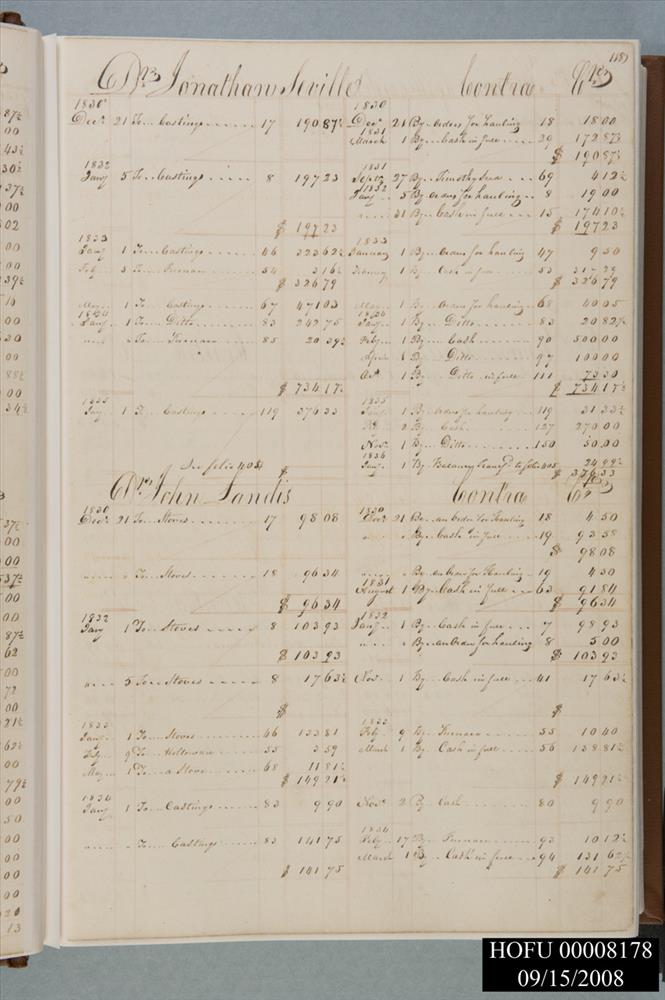 118
Drs Jonathan Seville Contra Crs
1830 1830
Decr 21 To Castings 17 190 87½ Decr 21 By Orders for hauling 18 18 00
1831
March 1 By Cash in full 29 172 87½
$ 190 87½
1832 1831
Jany 5 To Castings 8 197 23 Septr 27 By Timothy Seed 69 4 12½
1832
Jany 5 By Orders for hauling 8 19 00
" 31 By Cash in full 15 174 10½
$ 197 23 $ 197 23
1833 1833
Jany 1 To Castings 46 323 62½ January 1 By Orders for hauling 47 9 50
Feby 5 To Furnace 54 3 16½ 1 By Cash in full 53 317 29
$ 326 79 $ 326 79
May 1 To Castings 67 471 03 May 1 By Orders for hauling 68 40 05
1834 1834
Jany 1 To Ditto 83 242 75 Jany 1 By Ditto 83 20 82½
" " To Furnace 85 20 39½ Feby 1 By Cash 90 500 00
1 By Ditto 97 100 00
Oct 1 By Ditto in full 111 73 30
$ 734 17½ $ 734 17½
1835 1835
Jany 1 To Castings 119 376 33 Jany 1 By Orders for hauling 119 31 33½
2 By Cash 127 270 00
Nov 1 By Ditto 150 50 00
1836
Jany 1 By Balance to folio 405 24 99½
See folio 405 $ $ 376 33
Drs John Landis Contra Cr
1830 1830
Decr 21 To Stoves 17 98 08 Decr 21 By an Order for Hauling 18 4 50
" " By Cash in full 19 93 58
$ 98 08
" " To Stoves 18 96 34 " " By an Order for Hauling 19 4 50
1831
August 1 By Cash in full 63 91 84
$ 96 34 $ 96 34
1832 1832
Jany 1 To Stoves 8 103 93 Jany 1 By Cash in full 7 98 93
" " By an Order for hauling 8 5 00
$ 103 93 $ 103 93
" 5 To Stoves 8 17 63½ Nov 1 By Cash in full 41 17 63½
$ $
1833 1833
Jany 1 To Stoves 46 133 81 Feby 9 By Furnace 55 10 40
Feby 9 To Holloware 55 3 59 March 1 By Cash in full 56 138 81½
May 1 To a Stove 68 11 81½
$ 149 21½ $ 149 21½
1834
Jany 1 To Castings 83 9 90 Novr 2 By Cash 80 9 90
1834
" " To Castings 83 141 75 Feby 17 By Furnace 93 10 12½
March 1 By Cash in full 94 131 62½
$ 141 75 $ 141 75
HOFU 00008178
09/15/2008